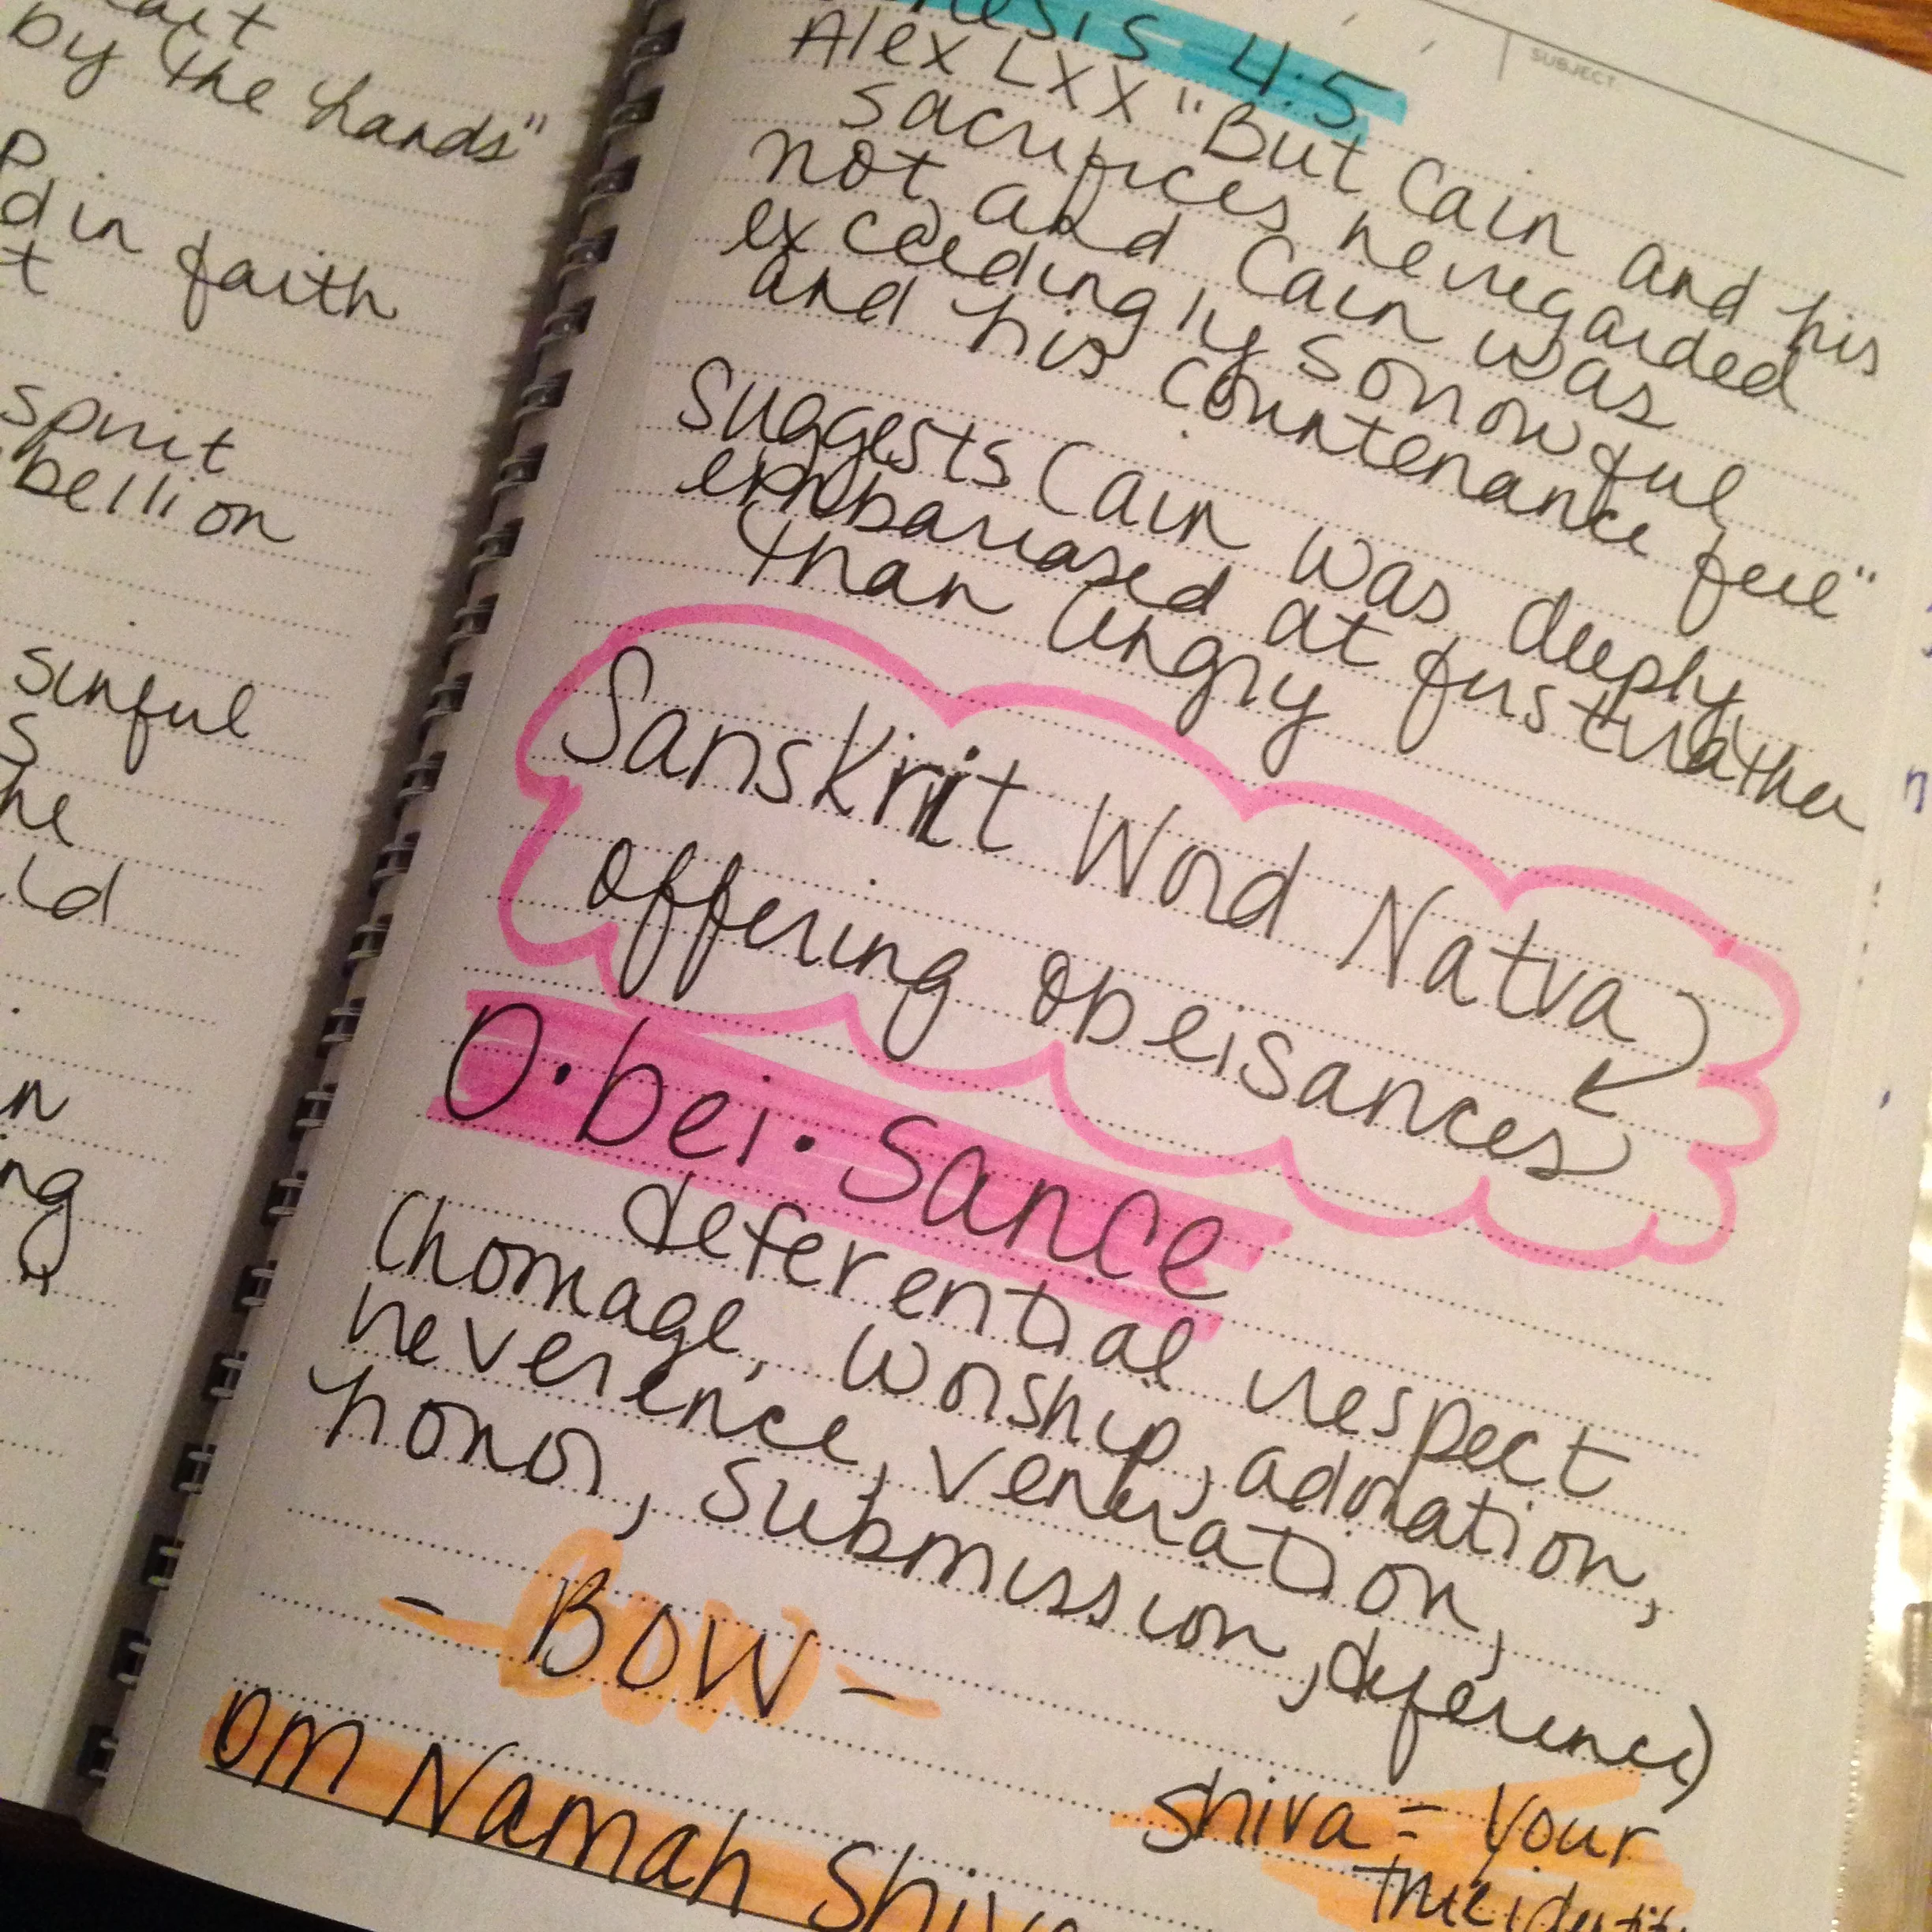 by the hands"
d in faith
t
spirit
bellion
sinful
s
he
ld
n
ng
SUBJECT
nesis 4:5
Alex LXX "But Cain and his
sacrifices he regarded
not, and Cain was
exceedingly sorrowful
and his countenance fell"
Suggests Cain was deeply
embarrased at first rather
than angry
Sanskrit Word Natva
offering obeisances
O·bei·sance
deferential respect
(homage, worship, adoration,
reverence, veneration,
honor, submission, deference)
- BOW -
shiva = your
true identit
om Namah Shiv